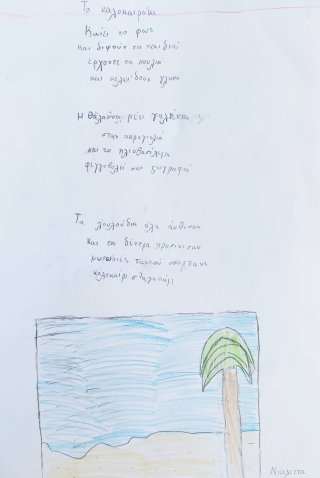 Το καλοκαιράκι
Καίει το φως
και διψούν τα παιδιά
έρχοντε τα πουλιά
και κελαϊδούν γλυκά
Η θάλασσα ρέει γαλήνια
στην ακρογιαλιά
και το ηλιοβασίλεμα
φεγγοβολεί σαν ζωγραφιά
Τα λουλούδια όλα άνθισαν
και τα δέντρα πρασίνισαν
μυρωδιές παντού σκορπάνε
καλοκαίρι